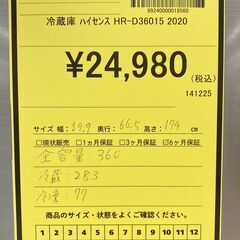 99240000018560
冷蔵庫 ハイセンス HR-D36015 2020
¥24,980
(税込)
141225
サイズ 幅:59.9 奥行:66.5 高さ:174 cm
□現状販売 □1ヵ月保証 □3ヶ月保証 ☑6ヶ月保証
全容量:360
冷蔵:283
冷凍:77
商品のサイズ・状態をよくご確認ください。
1 2 3 4 5 6 7 8 9 10 11 12